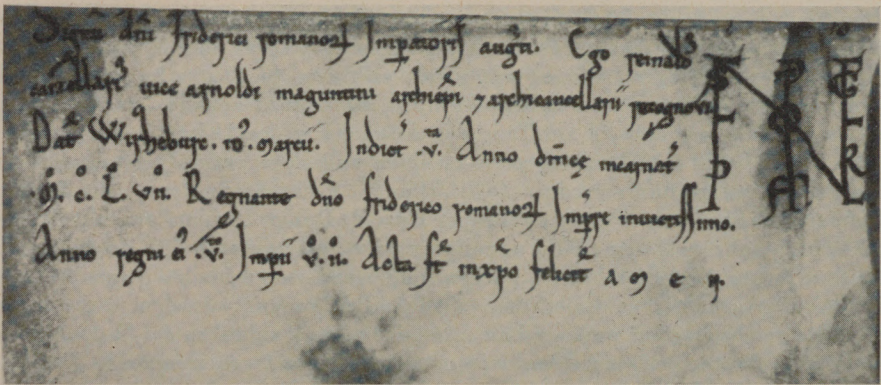 Signū dñi friderici romanoꝝ Imperatorꝭ augti. Ego reinald
cancellariꝰ vice arnoldi maguntini archiepi ⁊ archicancellarii recognovi
Dat Wirzeburc. Marcii. Indict .v. Anno dñicę incarnat
.M.C.L.VII. Regnante dño friderico romanoꝝ Impr̃e invictissimo.
Anno regni eiꝰ .v. Imperii v. ii. Acta st in xp̃o felicit A M E N.